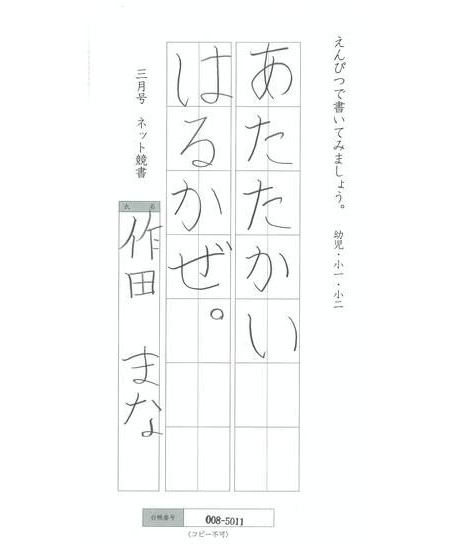 えんぴつで書いてみましょう。 幼児・小一・小二
あたたかい
はるかぜ。
三月号 ネット競書
氏名
作田 まな
会員番号 008-5011
(コピー不可)